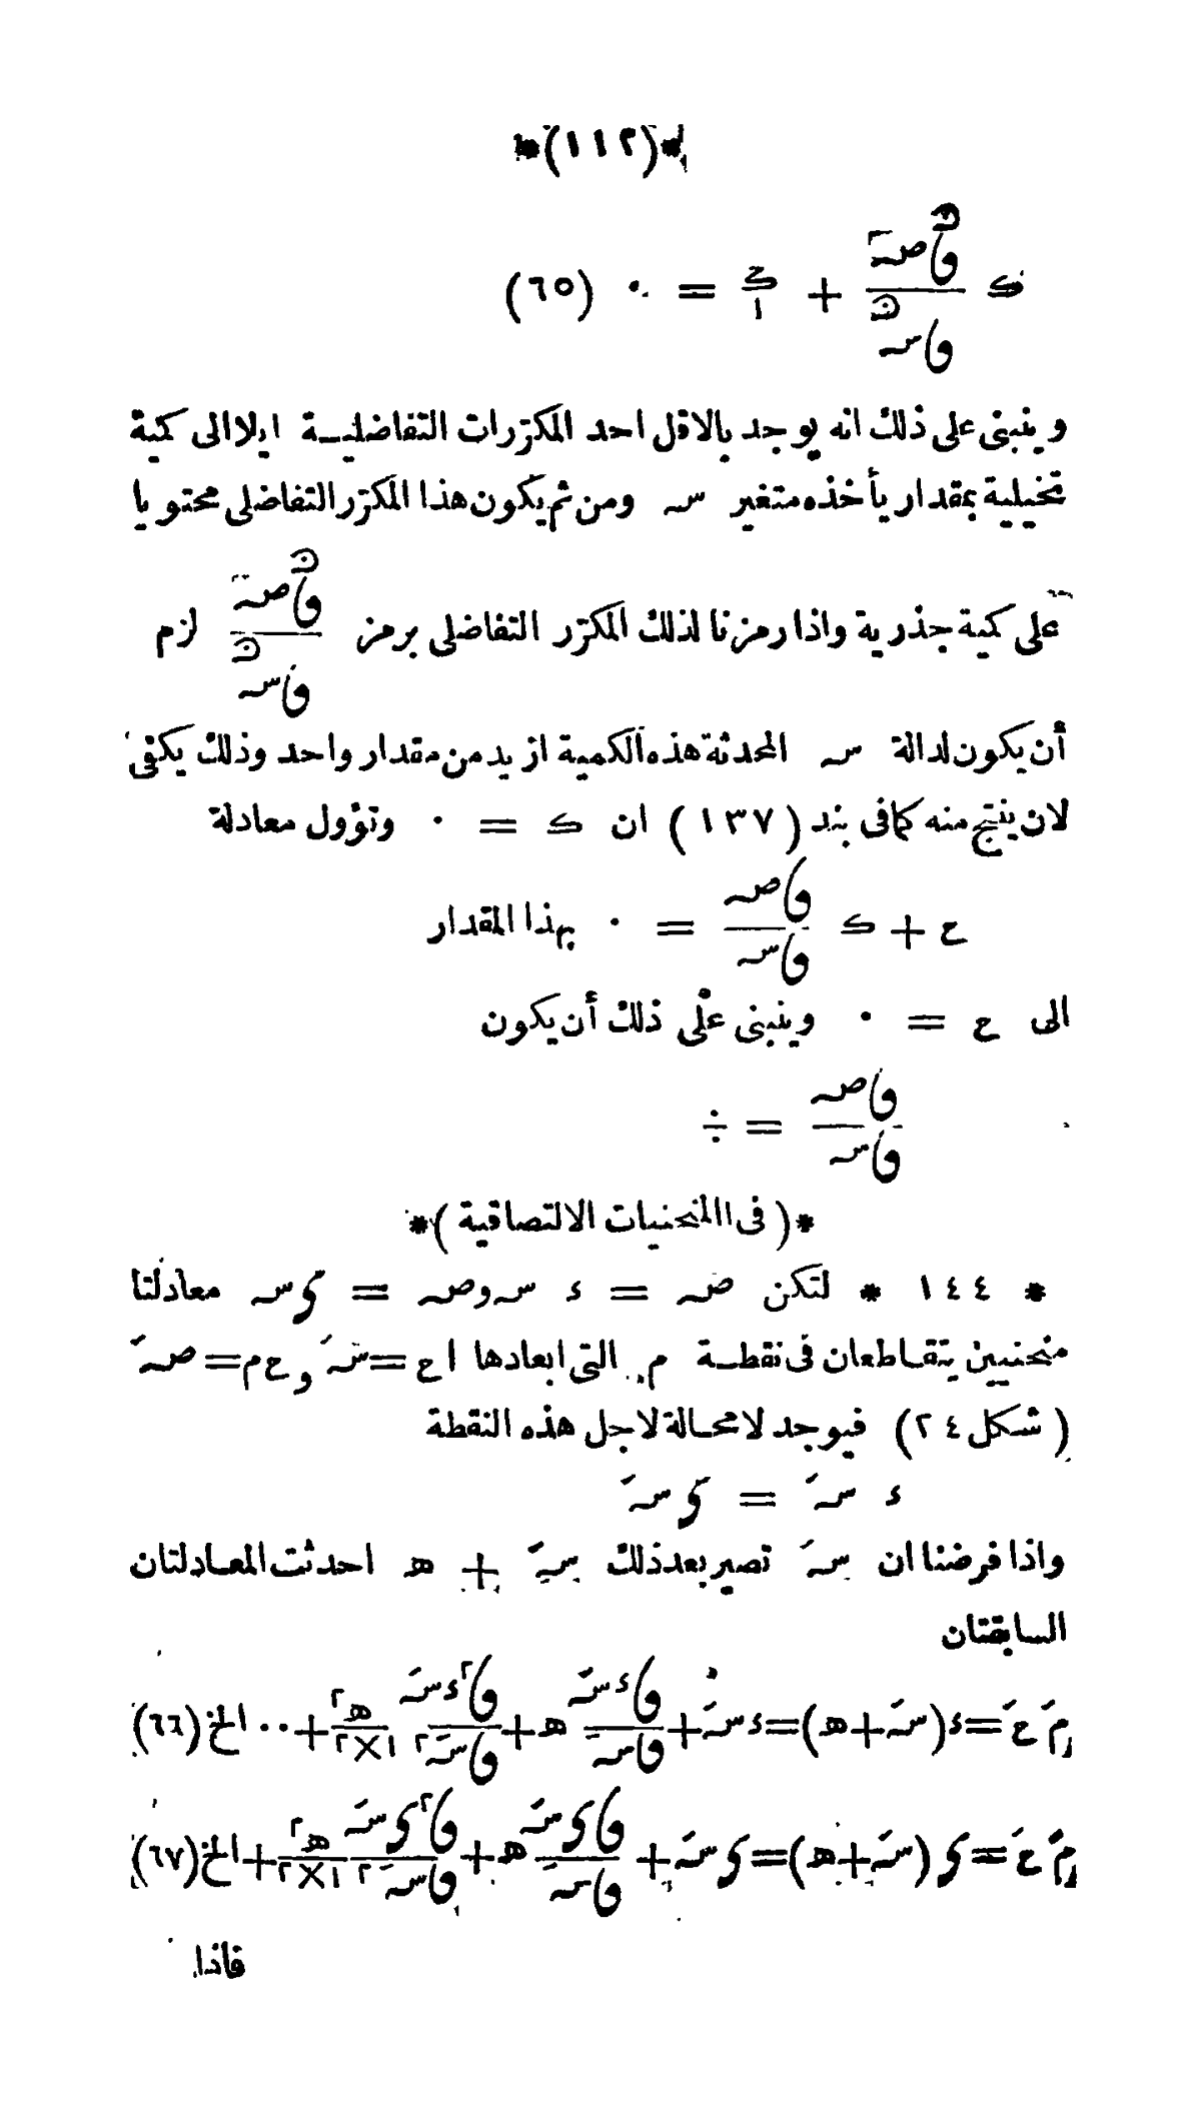 *(١١٢)*
ك \frac{ڡا^{ن}صہ}{ڡاسہ^{ن}} + \frac{ح}{١} = ٠ (٦٥)
وينبنى على ذلك انه يوجد بالاقل احد المكرّرات التفاضليـــة ايلا الى كمية
تخيلية بمقدار يأخذه متغير سہ ومن ثم يكون هذا المكرّر التفاضلى محتويا
على كمية جذرية واذا رمزنا لذلك المكرّر التفاضلى برمز \frac{ڡا^{ن}صہ}{ڡاسہ^{ن}} لزم
أن يكون لدالة سہ المحدثة هذه الكمية ازيد من مقدار واحد وذلك يكفى
لان ينتج منه كما فى بند (١٣٧) ان ك = ٠ وتؤول معادلة
ع + ك \frac{ڡاصہ}{ڡاسہ} = ٠ بهذا المقدار
الى ع = ٠ وينبنى على ذلك أن يكون
\frac{ڡاصہ}{ڡاسہ} = ÷
*( فى المنحنيات الالتصاقية )*
* ١٤٤ * لتكن صہ = ء سہ وصہ = ى سہ معادلتا
منحنيين يتقـاطعان فى نقطــة م التى ابعادها اع = سہَ و ع م = صہَ
(شكل ٢٤) فيوجد لامحـالة لاجل هذه النقطة
ء سہَ = ى سہَ
واذا فرضنا ان سہَ تصير بعد ذلك سہَ + ھ احدثت المعـادلتان
السابقتان
مَ عَ = ء(سہَ+ھ) = ء سہَ + \frac{ڡاء سہَ}{ڡاسہَ} ھ + \frac{ڡا^{٢}ء سہَ}{ڡاسہَ^{٢}} \frac{ھ^{٢}}{١×٢} + ٠٠ الخ (٦٦)
مً عَ = ى(سہَ+ھ) = ى سہَ + \frac{ڡاى سہَ}{ڡاسہَ} ھ + \frac{ڡا^{٢}ى سہَ}{ڡاسہَ^{٢}} \frac{ھ^{٢}}{١×٢} + الخ (٦٧)
فاذا